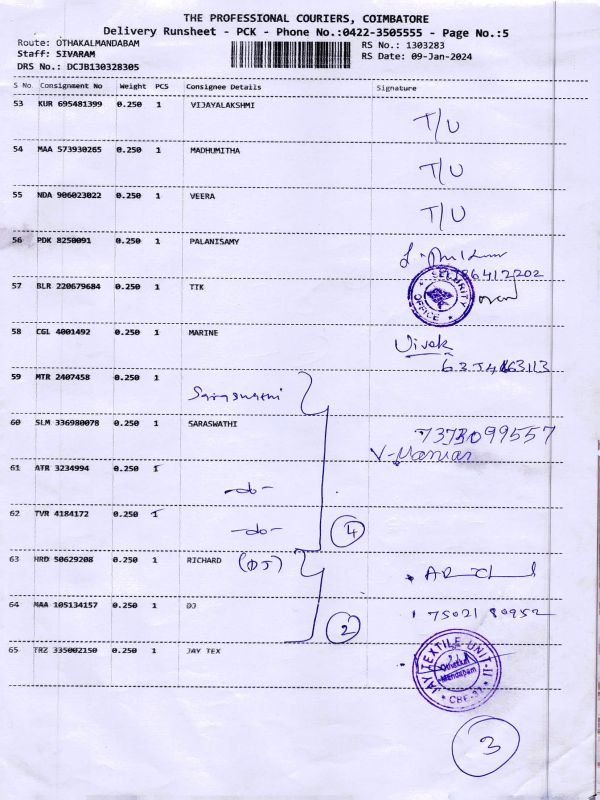 THE PROFESSIONAL COURIERS, COIMBATORE
Delivery Runsheet - PCK - Phone No.:0422-3505555 - Page No.:5
Route: OTHAKALMANDABAM
Staff: SIVARAM
DRS No.: DCJB130328305
RS No.: 1303283
RS Date: 09-Jan-2024
S No Consignment No Weight PCS Consignee Details Signature
53 KUR 695481399 0.250 1 VIJAYALAKSHMI T/U
54 MAA 573930265 0.250 1 MADHUMITHA T/U
55 NDA 906023022 0.250 1 VEERA T/U
56 PDK 8250091 0.250 1 PALANISAMY
57 BLR 220679684 0.250 1 TTK
SECURITY OFFICE
58 CGL 4001492 0.250 1 MARINE Vivek
59 MTR 2407458 0.250 1 Saraswathi
60 SLM 336980078 0.250 1 SARASWATHI 7373099557
61 ATR 3234994 0.250 1 -do-
62 TVR 4184172 0.250 1 -do- 4
63 HRD 50629208 0.250 1 RICHARD (DJ)
64 MAA 105134157 0.250 1 DJ 2 7502180952
65 TRZ 335002150 0.250 1 JAY TEX
JAY TEXTILE UNIT-II
Othakkal
Mandapam
CBE-32
3